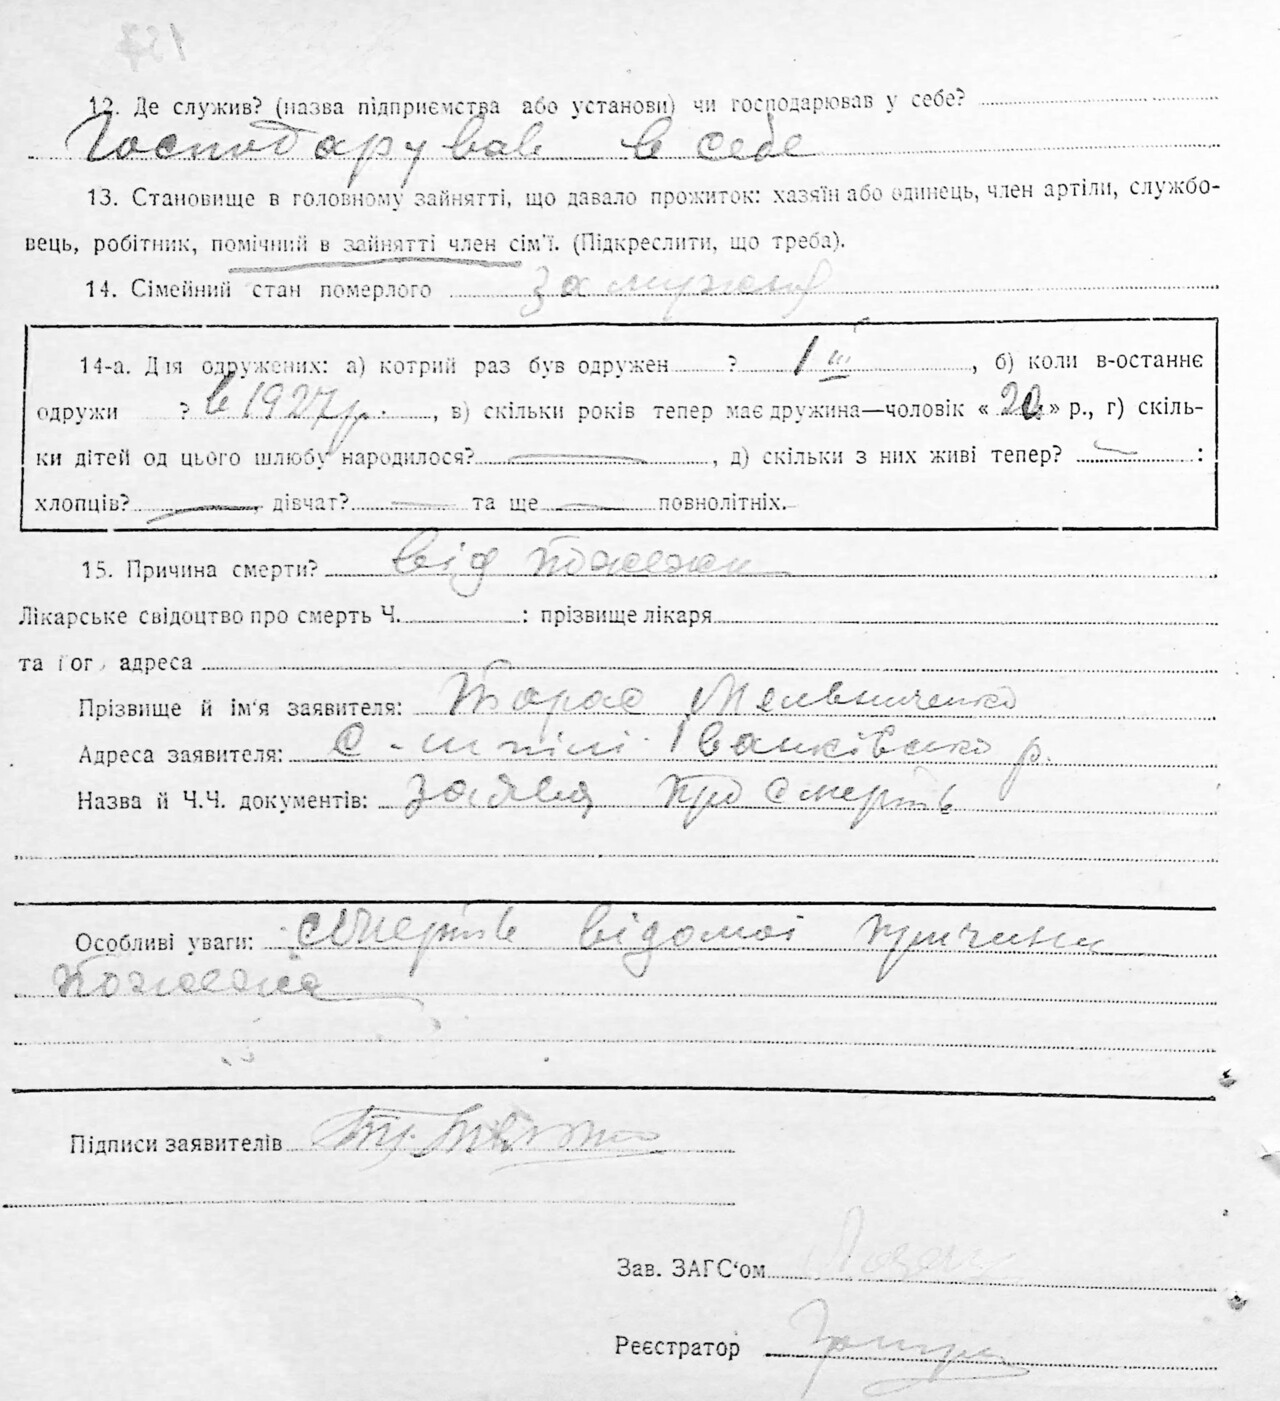 12. Де служив? (назва підприємства або установи) чи господарював у себе?
Господарував в себе
13. Становище в головному зайнятті, що давало прожиток: хазяїн або одинець, член артіли, службо-
вець, робітник, помічний в зайнятті член сім'ї. (Підкреслити, що треба).
14. Сімейний стан померлого замужня
14-а. Для одружених: а) котрий раз був одружен ? 1 ій, б) коли в-останнє
одружи ? в 1927 р., в) скільки років тепер має дружина—чоловік « » р., г) скіль-
ки дітей од цього шлюбу народилося? —, д) скільки з них живі тепер? — :
хлопців? —, дівчат? — та ще — повнолітніх.
15. Причина смерти? від пожежи
Лікарське свідоцтво про смерть Ч. : прізвище лікаря
та його адреса
Прізвище й ім'я заявителя: Тарас Мельниченко
Адреса заявителя: с. Іванківсько р.
Назва й Ч.Ч. документів: заява про смерть
Особливі уваги: смерть відомої причини
Пожежа
Підписи заявителів
Зав. ЗАГС'ом
Реєстратор